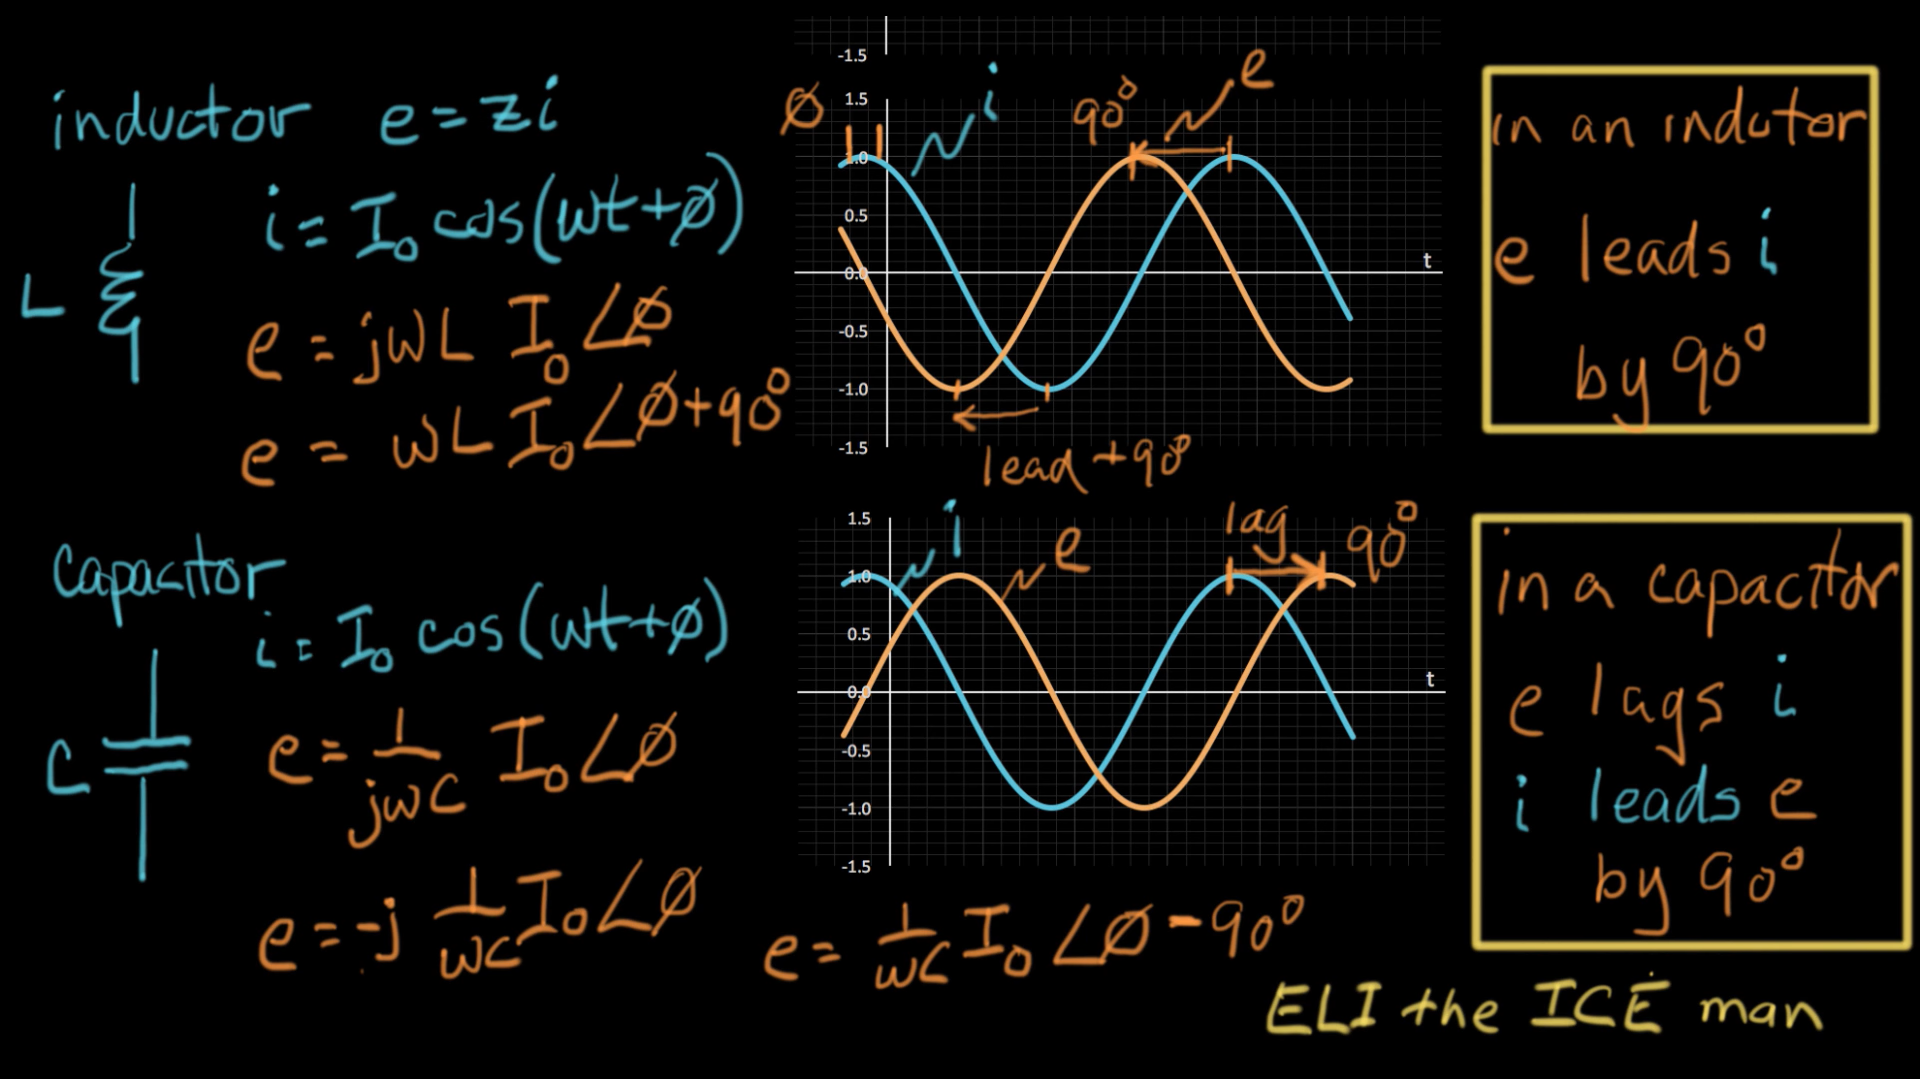 inductor e = zi
i = I₀ cos(ωt+ø)
L
e = jωL I₀ ∠ø
e = ωL I₀ ∠ø+90°
-1.5
ø
i
90°
e
1.5
1.0
0.5
0.0
-0.5
-1.0
-1.5
t
lead +90°
in an indutor
e leads i
by 90°
capacitor
i = I₀ cos(ωt+ø)
C
e = 1/jωC I₀ ∠ø
e = -j 1/ωC I₀ ∠ø
i
e
lag 90°
1.5
1.0
0.5
0.0
-0.5
-1.0
-1.5
t
e = 1/ωC I₀ ∠ø-90°
in a capacitor
e lags i
i leads e
by 90°
ELI the ICE man